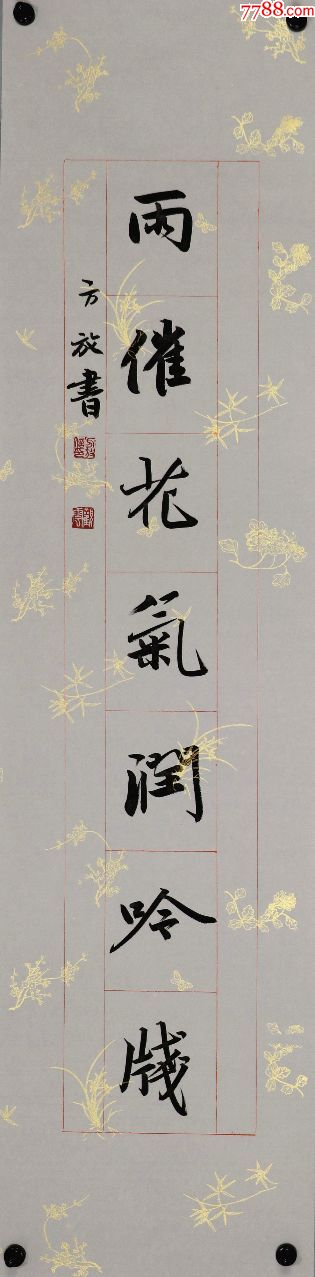 7788.com
雨催花氣潤吟牋
方放書